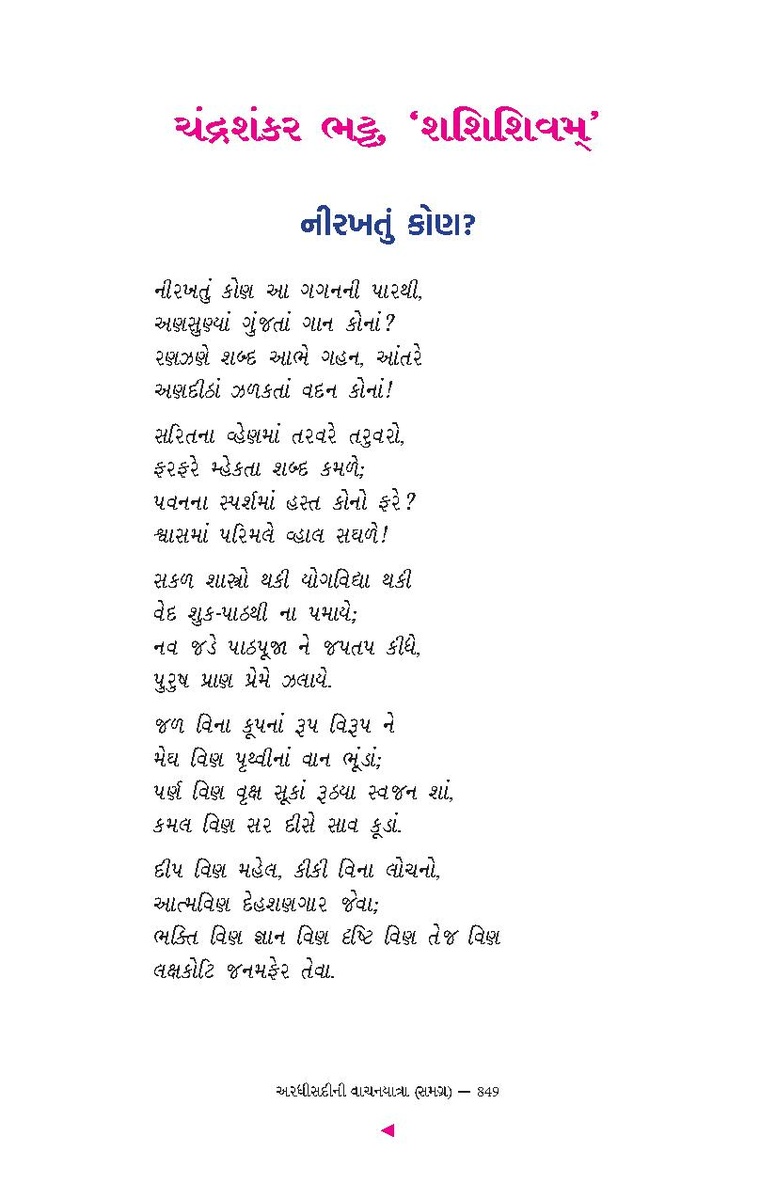 ચંદ્રશંકર ભટ્ટ, ‘શશિશિવમ્’
નીરખતું કોણ?
નીરખતું કોણ આ ગગનની પારથી,
અણસુણ્યાં ગુંજતાં ગાન કોનાં?
રણઝણે શબ્દ આભે ગહન, આંતરે
અણદીઠાં ઝળકતાં વદન કોનાં!
સરિતના વ્હેણમાં તરવરે તરુવરો,
ફરફરે મ્હેકતા શબ્દ કમળે;
પવનના સ્પર્શમાં હસ્ત કોનો ફરે?
શ્વાસમાં પરિમલે વ્હાલ સઘળે!
સકળ શાસ્ત્રો થકી યોગવિદ્યા થકી
વેદ શુક-પાઠથી ના પમાયે;
નવ જડે પાઠપૂજા ને જપતપ કીધે,
પુરુષ પ્રાણ પ્રેમે ઝલાયે.
જળ વિના કૂપનાં રૂપ વિરૂપ ને
મેઘ વિણ પૃથ્વીનાં વાન ભૂંડાં;
પર્ણ વિણ વૃક્ષ સૂકાં રૂઠ્યા સ્વજન શાં,
કમલ વિણ સર દીસે સાવ કૂડાં.
દીપ વિણ મહેલ, કીકી વિના લોચનો,
આત્મવિણ દેહશણગાર જેવા;
ભક્તિ વિણ જ્ઞાન વિણ દૃષ્ટિ વિણ તેજ વિણ
લક્ષકોટિ જનમફેર તેવા.
અરધીસદીની વાચનયાત્રા (સમગ્ર) — 849
◀